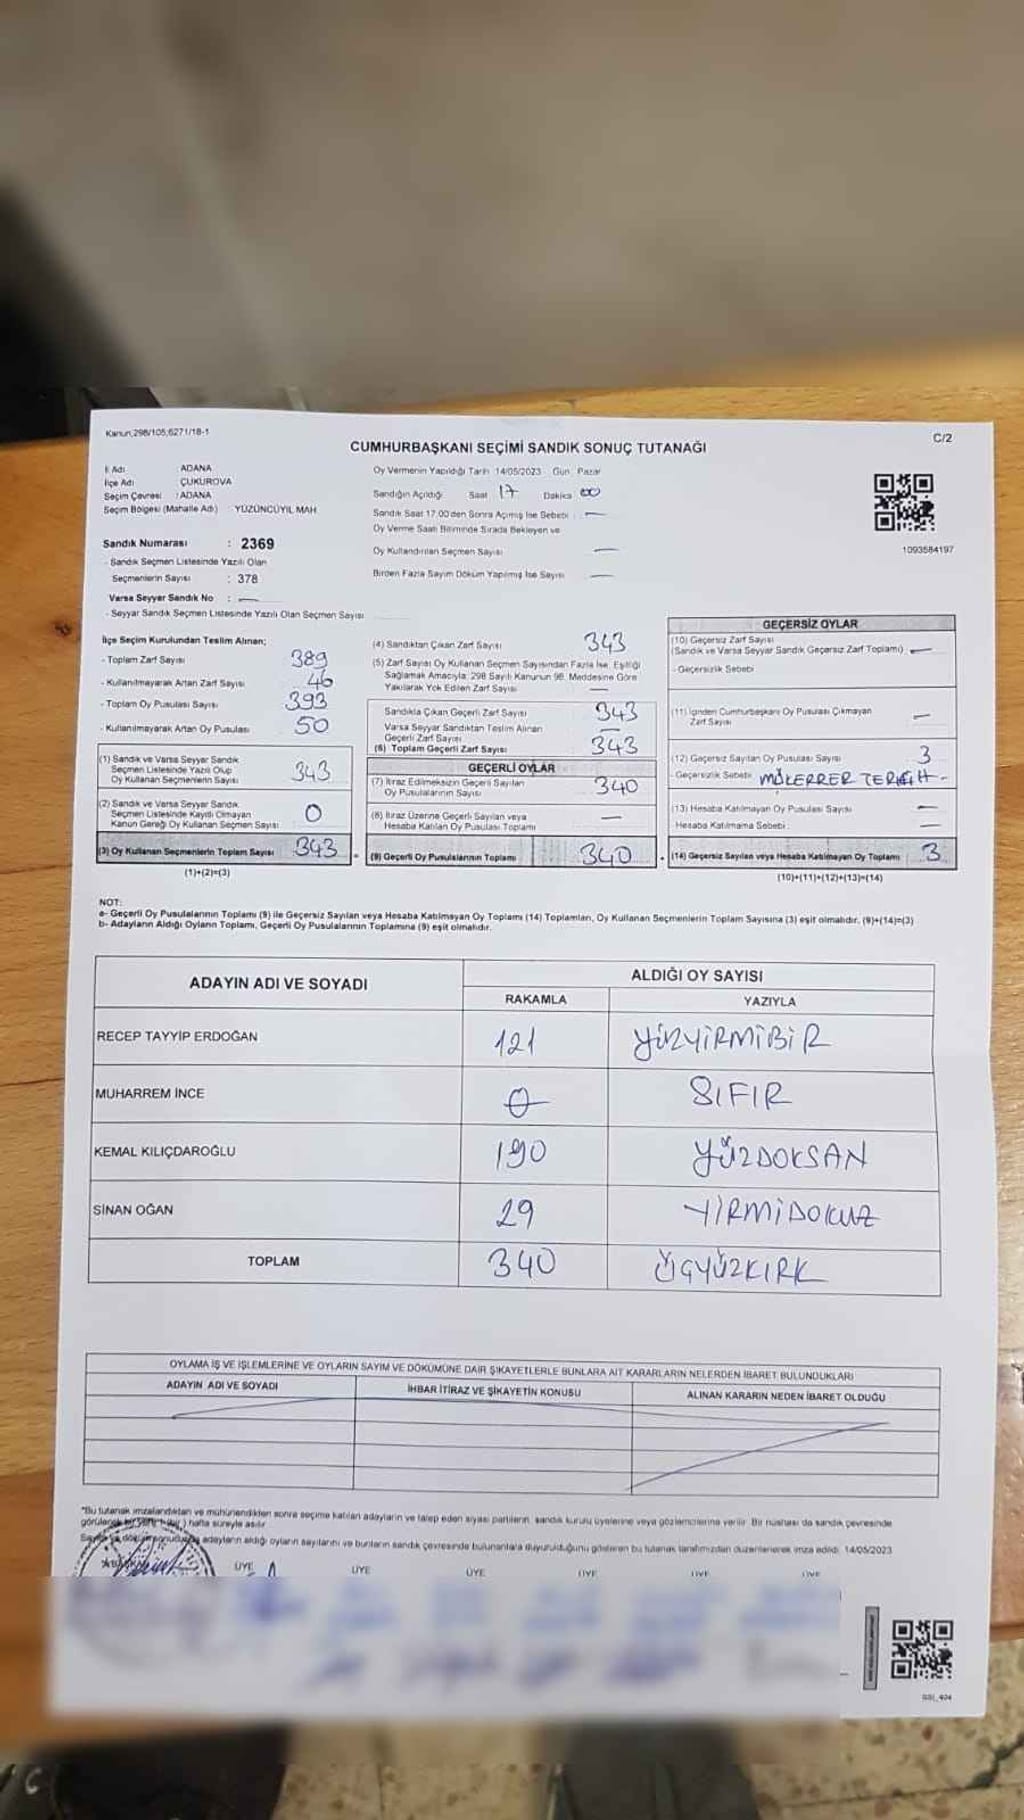 Kanun;298/105;6271/18-1
C/2
CUMHURBAŞKANI SEÇİMİ SANDIK SONUÇ TUTANAĞI
İl Adı ADANA
İlçe Adı ÇUKUROVA
Seçim Çevresi : ADANA
Seçim Bölgesi (Mahalle Adı) YÜZÜNCÜYIL MAH.
Sandık Numarası : 2369
- Sandık Seçmen Listesinde Yazılı Olan
Seçmenlerin Sayısı : 378
Varsa Seyyar Sandık No : —
- Seyyar Sandık Seçmen Listesinde Yazılı Olan Seçmen Sayısı
Oy Vermenin Yapıldığı Tarih 14/05/2023 Gün: Pazar
Sandığın Açıldığı Saat 17 Dakika 00
Sandık Saat 17.00'den Sonra Açılmış İse Sebebi : —
Oy Verme Saati Bitiminde Sırada Bekleyen ve
Oy Kullandırılan Seçmen Sayısı —
Birden Fazla Sayım Döküm Yapılmış İse Sayısı —
1093584197
İlçe Seçim Kurulundan Teslim Alınan;
- Toplam Zarf Sayısı 389
- Kullanılmayarak Artan Zarf Sayısı 46
- Toplam Oy Pusulası Sayısı 393
- Kullanılmayarak Artan Oy Pusulası 50
(1) Sandık ve Varsa Seyyar Sandık
Seçmen Listesinde Yazılı Olup
Oy Kullanan Seçmenlerin Sayısı 343
(2) Sandık ve Varsa Seyyar Sandık
Seçmen Listesinde Kayıtlı Olmayan
Kanun Gereği Oy Kullanan Seçmen Sayısı 0
(3) Oy Kullanan Seçmenlerin Toplam Sayısı 343
(1)+(2)=(3)
(4) Sandıktan Çıkan Zarf Sayısı 343
(5) Zarf Sayısı Oy Kullanan Seçmen Sayısından Fazla İse, Eşitliği
Sağlamak Amacıyla; 298 Sayılı Kanunun 98. Maddesine Göre
Yakılarak Yok Edilen Zarf Sayısı —
Sandıkta Çıkan Geçerli Zarf Sayısı 343
Varsa Seyyar Sandıktan Teslim Alınan
Geçerli Zarf Sayısı —
(6) Toplam Geçerli Zarf Sayısı 343
GEÇERLİ OYLAR
(7) İtiraz Edilmeksizin Geçerli Sayılan
Oy Pusulalarının Sayısı 340
(8) İtiraz Üzerine Geçerli Sayılan veya
Hesaba Katılan Oy Pusulası Toplamı —
(9) Geçerli Oy Pusulalarının Toplamı 340
GEÇERSİZ OYLAR
(10) Geçersiz Zarf Sayısı
(Sandık ve Varsa Seyyar Sandık Geçersiz Zarf Toplamı) —
- Geçersizlik Sebebi
(11) İçinden Cumhurbaşkanı Oy Pusulası Çıkmayan
Zarf Sayısı —
(12) Geçersiz Sayılan Oy Pusulası Sayısı 3
- Geçersizlik Sebebi MÜKERRER TERCİH -
(13) Hesaba Katılmayan Oy Pusulası Sayısı —
Hesaba Katılmama Sebebi : —
(14) Geçersiz Sayılan veya Hesaba Katılmayan Oy Toplamı 3
(10)+(11)+(12)+(13)=(14)
NOT:
a- Geçerli Oy Pusulalarının Toplamı (9) ile Geçersiz Sayılan veya Hesaba Katılmayan Oy Toplamı (14) Toplamları, Oy Kullanan Seçmenlerin Toplam Sayısına (3) eşit olmalıdır. (9)+(14)=(3)
b- Adayların Aldığı Oyların Toplamı, Geçerli Oy Pusulalarının Toplamına (9) eşit olmalıdır.
ADAYIN ADI VE SOYADI
ALDIĞI OY SAYISI
RAKAMLA YAZIYLA
RECEP TAYYİP ERDOĞAN 121 YÜZYİRMİBİR
MUHARREM İNCE 0 SIFIR
KEMAL KILIÇDAROĞLU 190 YÜZDOKSAN
SİNAN OĞAN 29 YİRMİDOKUZ
TOPLAM 340 ÜÇYÜZKIRK
OYLAMA İŞ VE İŞLEMLERİNE VE OYLARIN SAYIM VE DÖKÜMÜNE DAİR ŞİKAYETLERLE BUNLARA AİT KARARLARIN NELERDEN İBARET BULUNDUKLARI
ADAYIN ADI VE SOYADI İHBAR İTİRAZ VE ŞİKAYETİN KONUSU ALINAN KARARIN NEDEN İBARET OLDUĞU
"Bu tutanak imzalandıktan ve mühürlendikten sonra seçime katılan adayların ve talep eden siyasi partilerin, sandık kurulu üyelerine veya gözlemcilerine verilir. Bir nüshası da sandık çevresinde
görülecek bir yere 1 (bir) hafta süreyle asılır.
adayların aldığı oyların sayılarını ve bunların sandık çevresinde bulunanlara duyurulduğunu gösteren bu tutanak tarafımızdan düzenlenerek imza edildi. 14/05/2023
ÜYE ÜYE ÜYE ÜYE ÜYE ÜYE